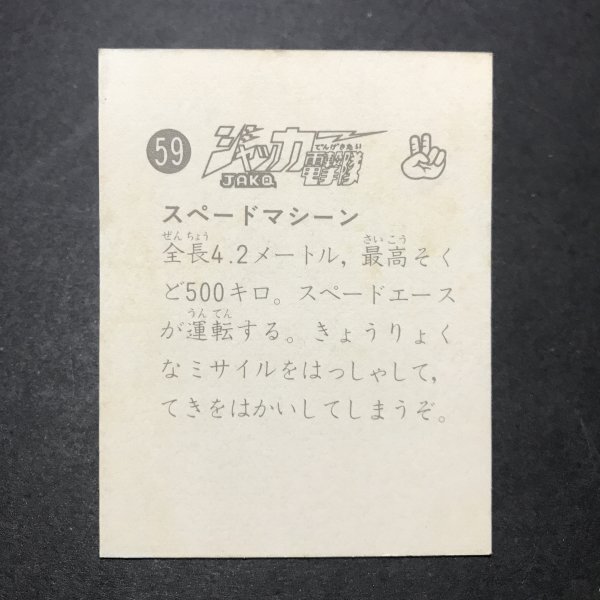 59
ジャッカー
でんげきたい
電撃隊
JAKQ
スペードマシーン
ぜんちょう さいこう
全長4.2メートル，最高そく
ど500キロ。スペードエース
うんてん
が運転する。きょうりょく
なミサイルをはっしゃして，
てきをはかいしてしまうぞ。